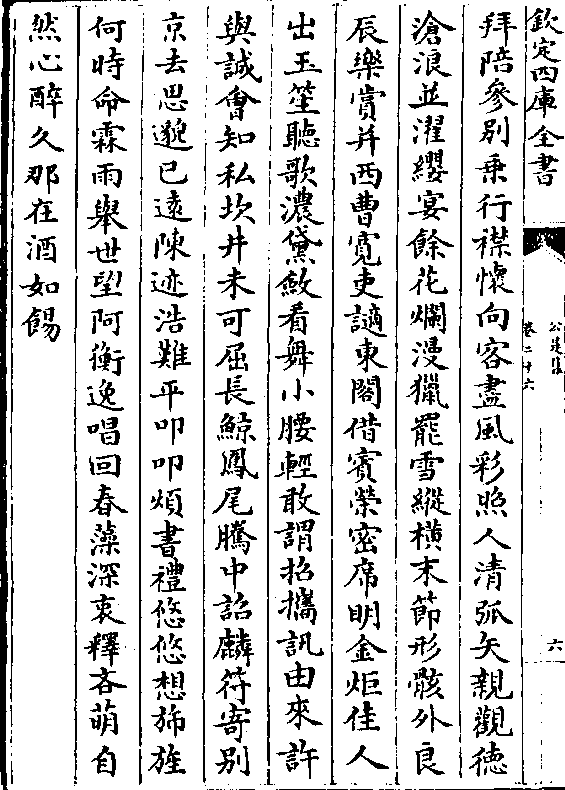 欽定四庫全書
公是集
卷二十六
六
拜陪參別乗行襟懷向容盡風彩照人清弧矢親觀徳
滄浪並濯纓宴餘花爛漫獵罷雪縱横末節形骸外良
辰樂賞并西曹寛吏謫東閣借賓榮密席明金炬佳人
出玉笙聽歌濃黛斂看舞小腰輕敢謂招攜訊由來許
與誠會知私坎井未可屈長鯨鳳尾騰中詔麟符寄别
京去思邈已遠陳迹浩難平叩叩煩書禮悠悠想斾旌
何時命霖雨舉世望阿衡逸唱回春藻深衷釋吝萌自
然心醉久那在酒如餳